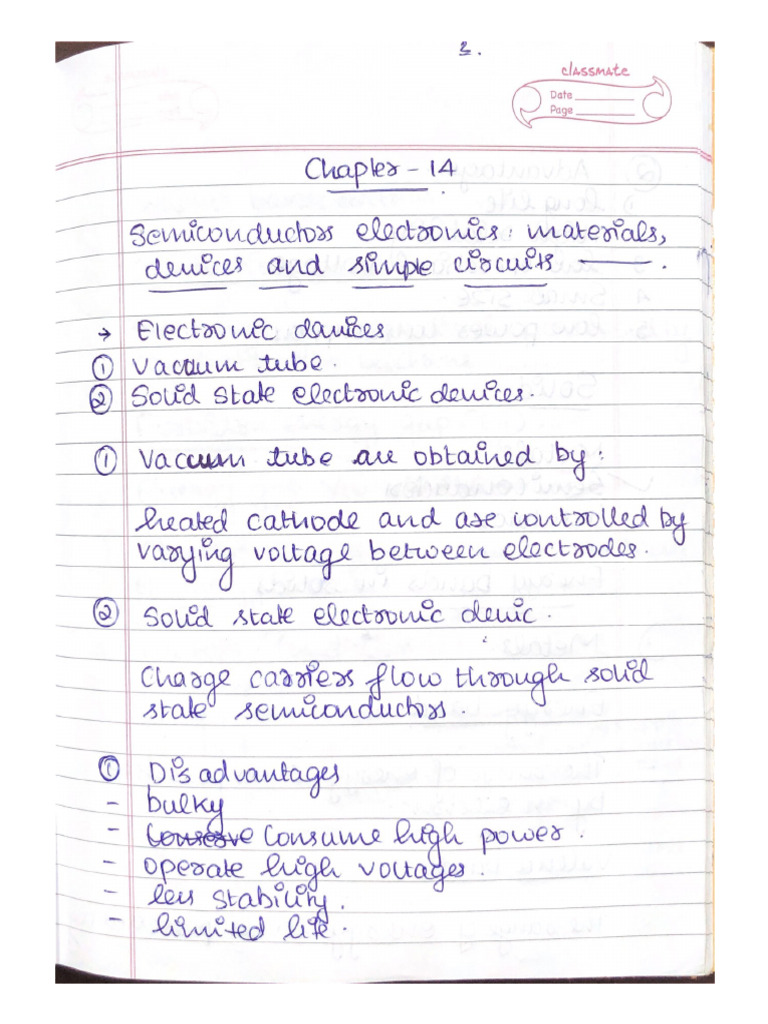 2.
classmate
Date
Page
Chapter - 14
Semiconductors electronics: materials,
devices and simple circuits.
→ Electronic devices
① Vacuum tube.
② Solid state electronic devices.
① Vacuum tube are obtained by:
heated cathode and are controlled by
varying voltage between electrodes.
② Solid state electronic devic.
Charge carriers flow through solid
state semiconductors.
① Disadvantages
- bulky
- Conserve Consume high power.
- operate high voltages.
- less stability.
- limited life.